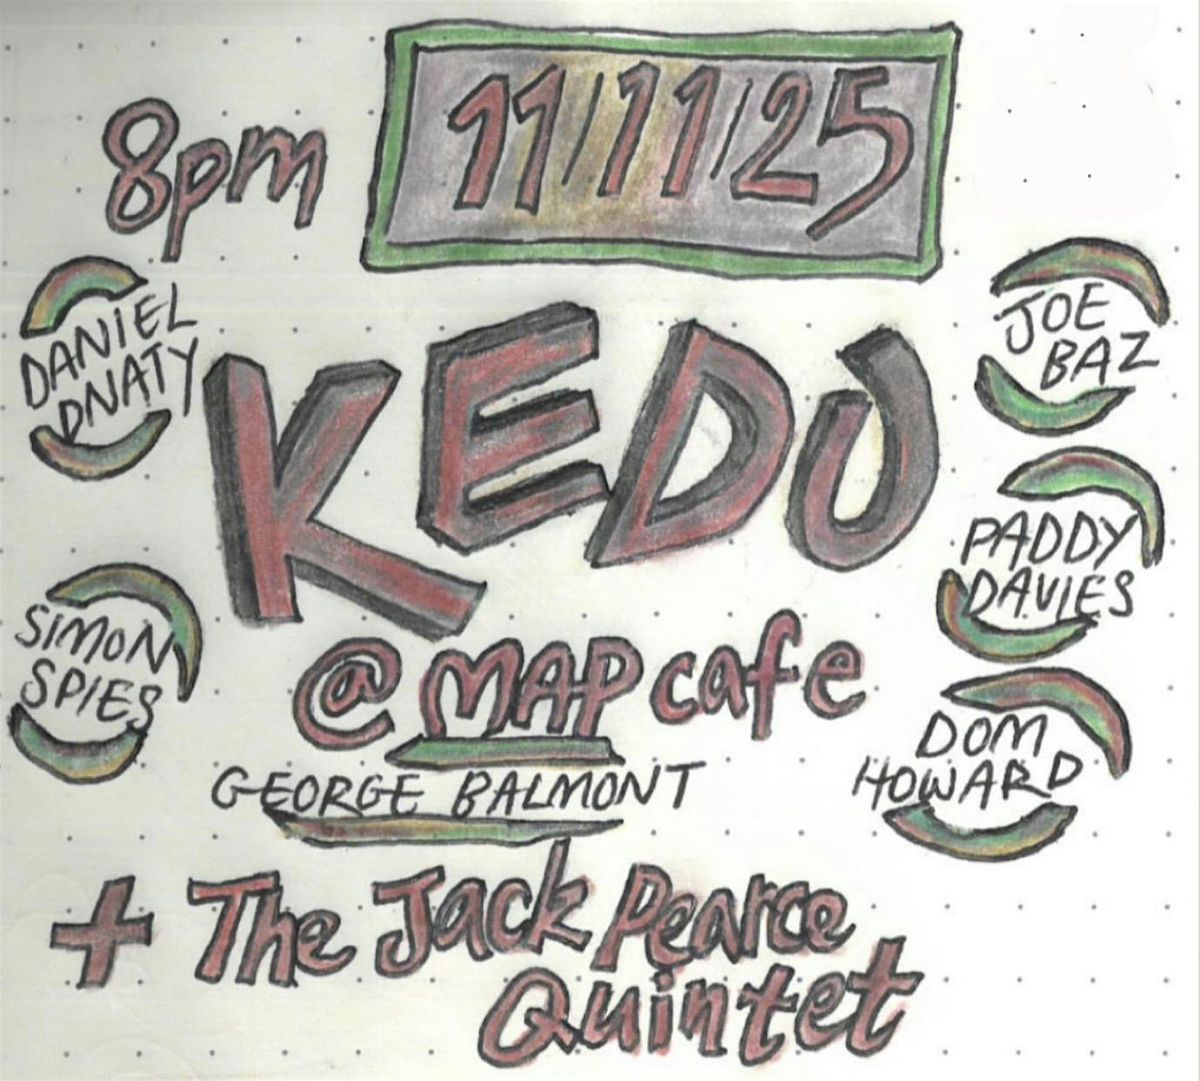 8pm
11/11/25
DANIEL
DNATY
JOE
BAZ
KEDU
PADDY
DAVIES
SIMON
SPIES
@ MAP cafe
DOM
HOWARD
GEORGE BALMONT
+ The Jack Pearce
Quintet